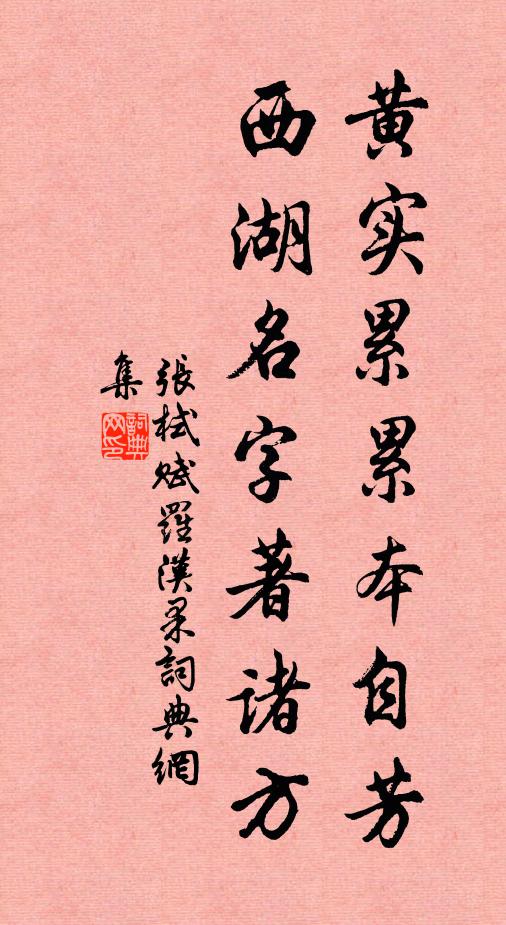 黄实累累本自芳
西湖名字著诸方
張栻賦羅漢果詞典網
集
詞典網印